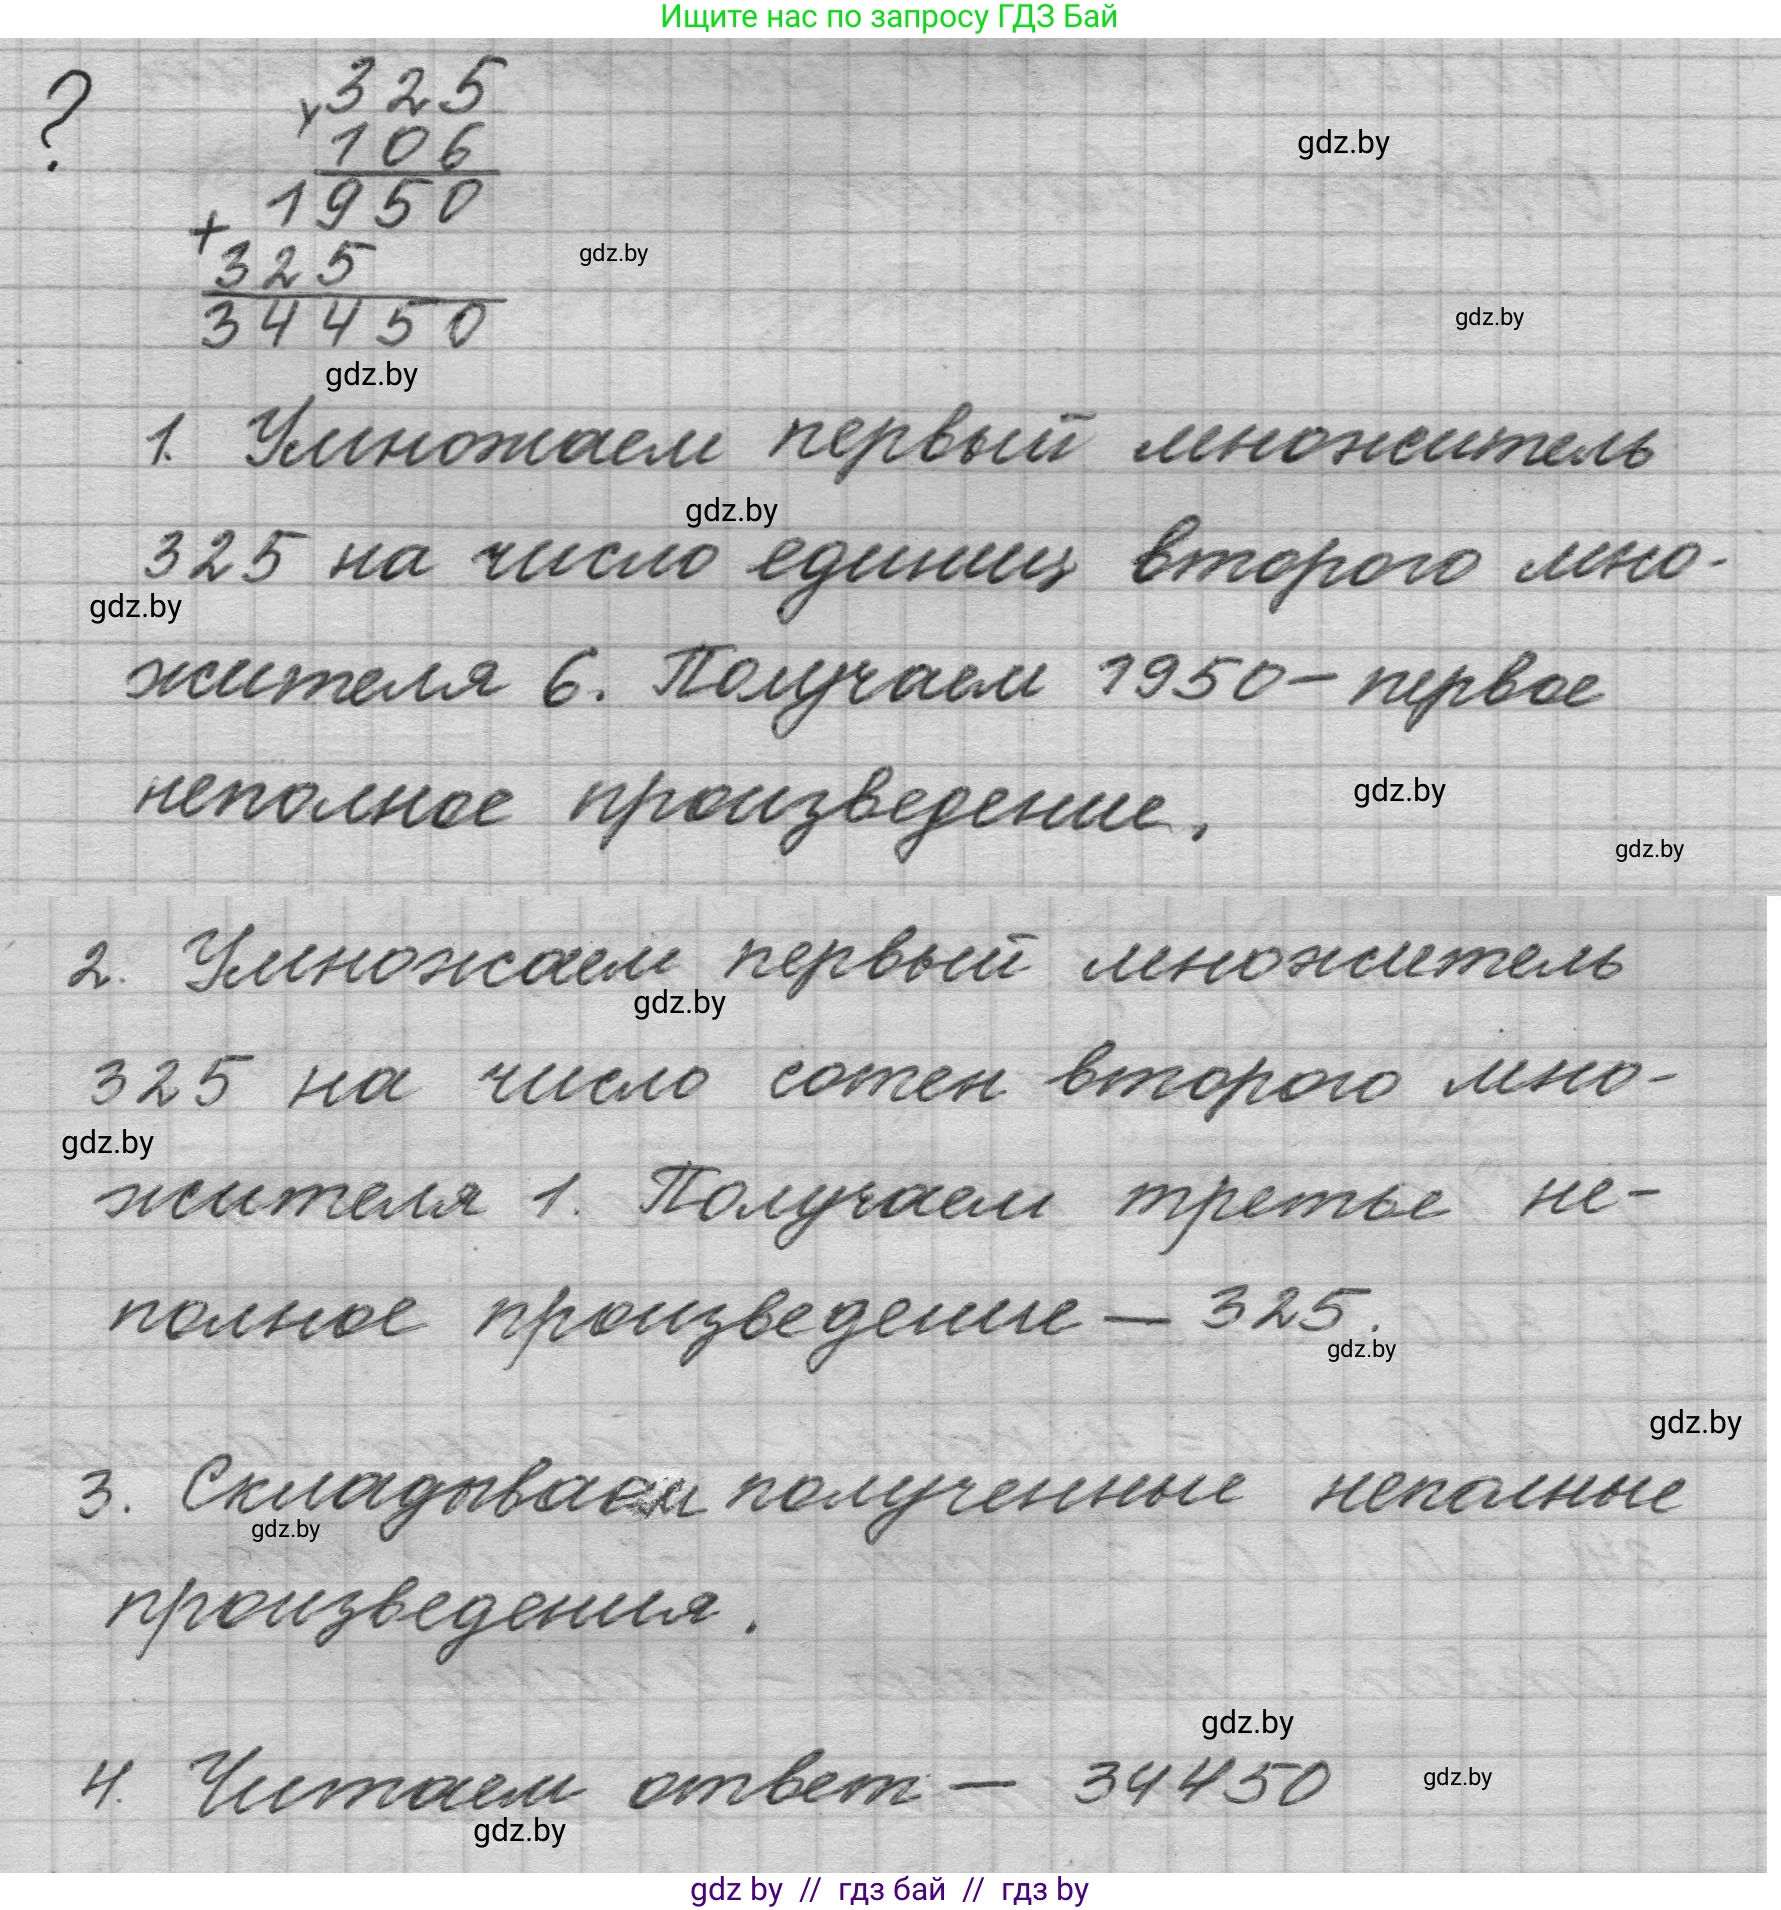 Ищите нас по запросу ГДЗ Бай
? × 325
106
gdz.by
1950
+
325
gdz.by
gdz.by
34450
gdz.by
1. Умножаем первый множитель
gdz.by
325 на число единиц второго мно-
gdz.by
жителя 6. Получаем 1950 – первое
неполное произведение.
gdz.by
gdz.by
2. Умножаем первый множитель
gdz.by
325 на число сотен второго мно-
gdz.by
жителя 1. Получаем третье не-
полное произведение — 325.
gdz.by
gdz.by
3. Складываем полученные неполные
gdz.by
произведения.
gdz.by
4. Читаем ответ — 34450
gdz.by
gdz.by
gdz by // гдз бай // гдз by